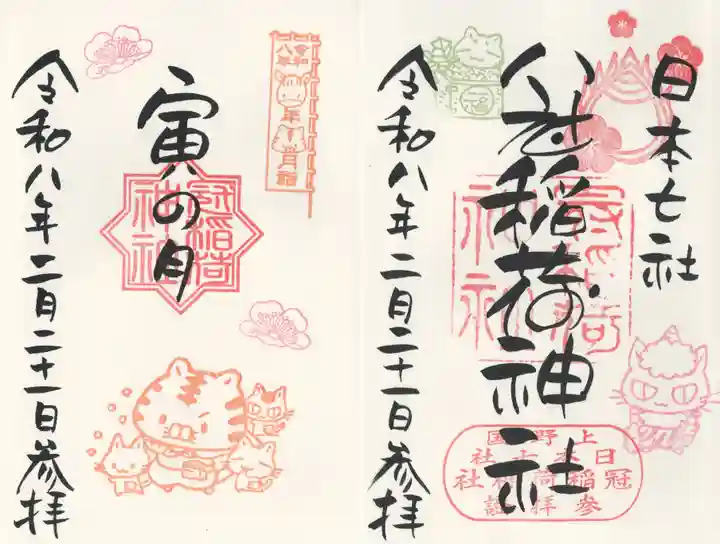 日本七社
冠稲荷神社
令和八年二月二十一日参拝
上野国
日本七社
冠稲荷神社
参拝證
令和八年
年
月詣
寅の月
冠稲荷神社
令和八年二月二十一日参拝